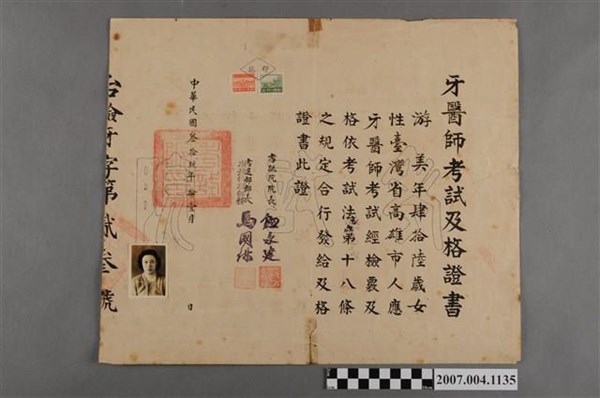 牙醫師考試及格證書
游 美年肆拾陸歲女
性臺灣省高雄市人應
牙醫師考試經檢覈及
格依考試法第十八條
之規定合行發給及格
證書此證
考試院院長
考選部部長 馬國琳
中華民國叁拾玖年 月
日
台檢牙字第貳叁號
2007.004.1135